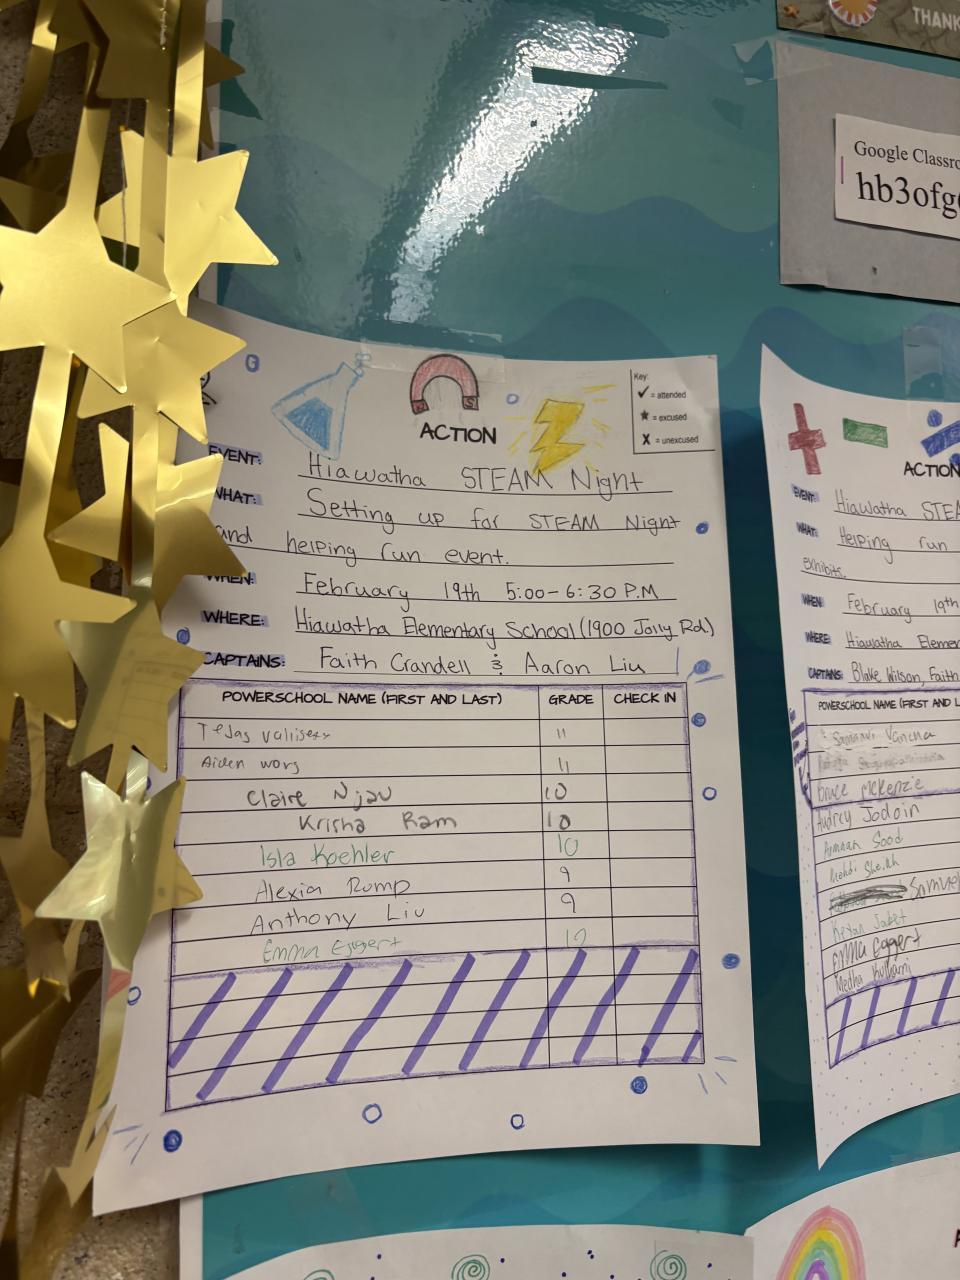 THANK
Google Classro
hb3ofg
Key:
✓ = attended
★ = excused
X = unexcused
N S
ACTION
EVENT: Hiawatha STEAM Night
WHAT: Setting up for STEAM Night
and helping run event.
WHEN: February 19th 5:00-6:30 P.M
WHERE: Hiawatha Elementary School (1900 Jolly Rd.)
CAPTAINS: Faith Crandell & Aaron Liu
POWERSCHOOL NAME (FIRST AND LAST) GRADE CHECK IN
Tejas 11
Aiden 11
Claire Njau 10
Krisha Ram 10
Isla Koehler 10
Alexia Rump 9
Anthony Liu 9
Emma Eggert 10
ACTION
EVENT: Hiawatha STEA
WHAT: Helping run
exhibits.
WHEN February 19th
WHERE: Hiawatha Elemen
CAPTAINS: Blake Wilson, Faith
POWERSCHOOL NAME (FIRST AND L
Vancha
Bruce McKenzie
Audrey Jodoin
Sood
Mehdi Sheikh
Samuel
Emma Eggert
Medha Kulkarni